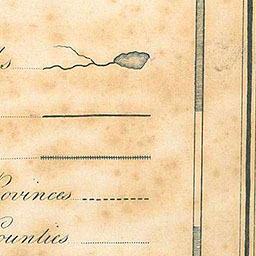 s
ovinces
ounties